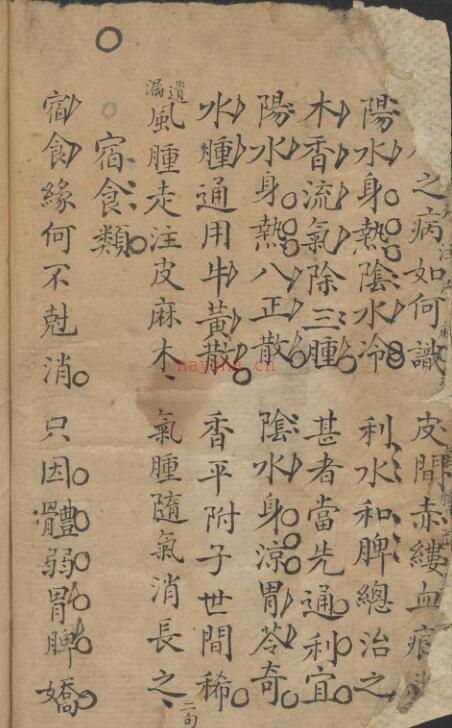 之病如何識 皮間赤縷血痕
陽水身熱陰水冷 利水和脾總治之
木香流氣除三腫 甚者當先通利宜
陽水身熱八正散 陰水身涼胃苓奇
水腫通用牛黃散 香平附子世間稀
遺漏
風腫走注皮麻木 氣腫隨氣消長之 二句
宿食類
宿食緣何不尅消 只因體弱胃脾嬌
nayona.cn